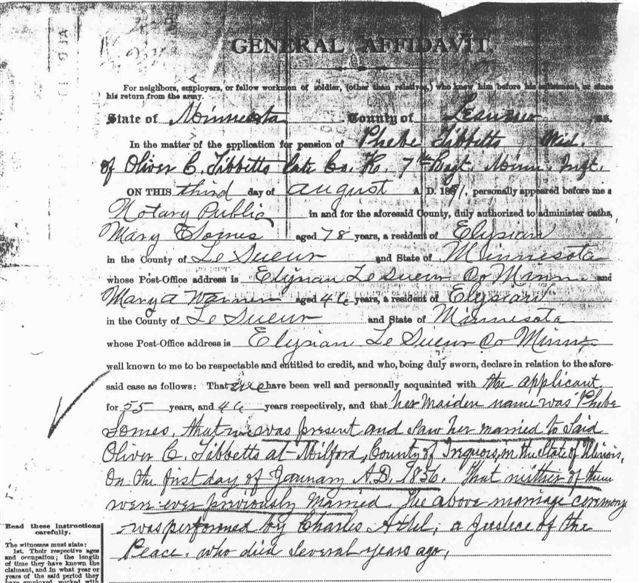 GENERAL AFFIDAVIT.
For neighbors, employers, or fellow workmen of soldier, (other than relatives,) who knew him before his enlistment, or since
his return from the army.
State of Minnesota County of Lesueur ss.
In the matter of the application for pension of Phebe Tibbetts Wid.
of Oliver C. Tibbetts late Co. K. 7th Regt. Minn. Inft.
ON THIS third day of august A. D. 1891, personally appeared before me a
Notary Public in and for the aforesaid County, duly authorized to administer oaths,
Mary Somes aged 78 years, a resident of Elysian
in the County of Le Sueur and State of Minnesota
whose Post-Office address is Elysian Le Sueur Co Minn and
Mary A Warner aged 46 years, a resident of Elysian
in the County of Le Sueur and State of Minnesota
whose Post-Office address is Elysian Le Sueur Co Minn
well known to me to be respectable and entitled to credit, and who, being duly sworn, declare in relation to the afore-
said case as follows: That we have been well and personally acquainted with the applicant
for 55 years, and 46 years respectively, and that her maiden name was Phebe
Somes, that was present and saw her married to Said
Oliver C. Tibbetts at Milford, County of in the State of Illinois,
On the first day of January A.D. 1856. That neither of them
were ever previously married. The above marriage ceremony
was performed by Charles a Justice of the
Peace. who died several years ago,
Read these instructions
carefully.
The witnesses must state:
1st. Their respective ages
and occupation; the length
of time they have known the
claimant, and in what year or
years of the said period they
have employed, worked with